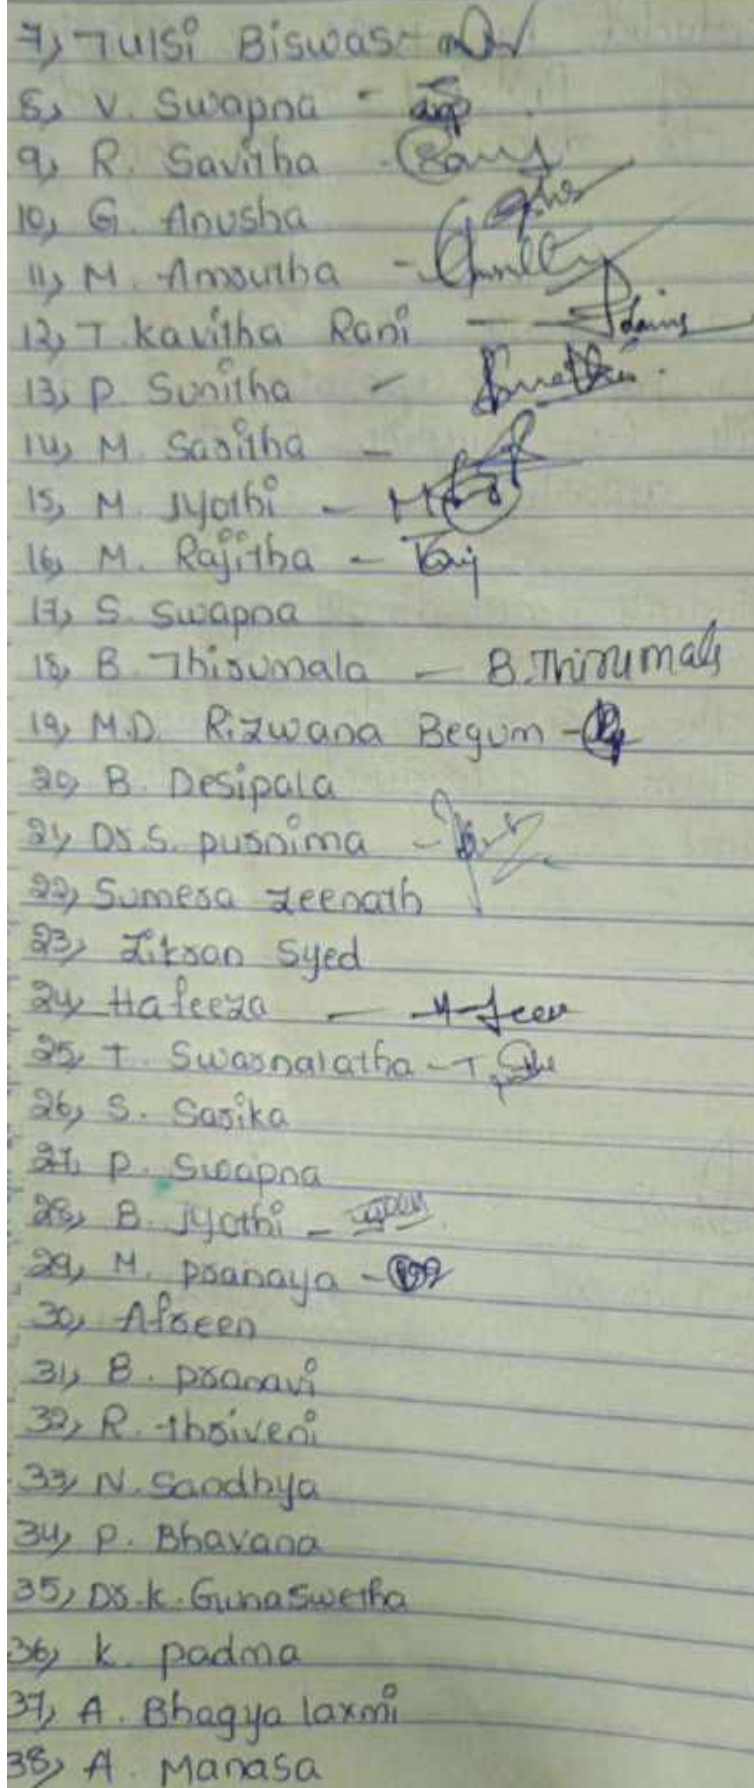 7, Tulsi Biswas -
8, V. Swapna -
9, R. Savitha -
10, G. Anusha
11, M. Amrutha -
12, T. Kavitha Rani -
13, P. Sunitha -
14, M. Saritha -
15, M. Jyothi -
16, M. Rajitha - Raj
17, S. Swapna
18, B. Thirumala - B. Thirumala
19, M.D. Rizwana Begum -
20, B. Desipala
21, Dr. S. purnima -
22, Sumera Zeenath
23, Syed
24, Hafeeza -
25, T. Swarnalatha - T.
26, S. Sarika
27, P. Swapna
28, B. Jyothi -
29, M. pranaya -
30, Afreen
31, B. pranavi
32, R. thriveni
33, N. Sandhya
34, P. Bhavana
35, Dr. K. Gunaswetha
36, K. padma
37, A. Bhagya laxmi
38, A. Manasa